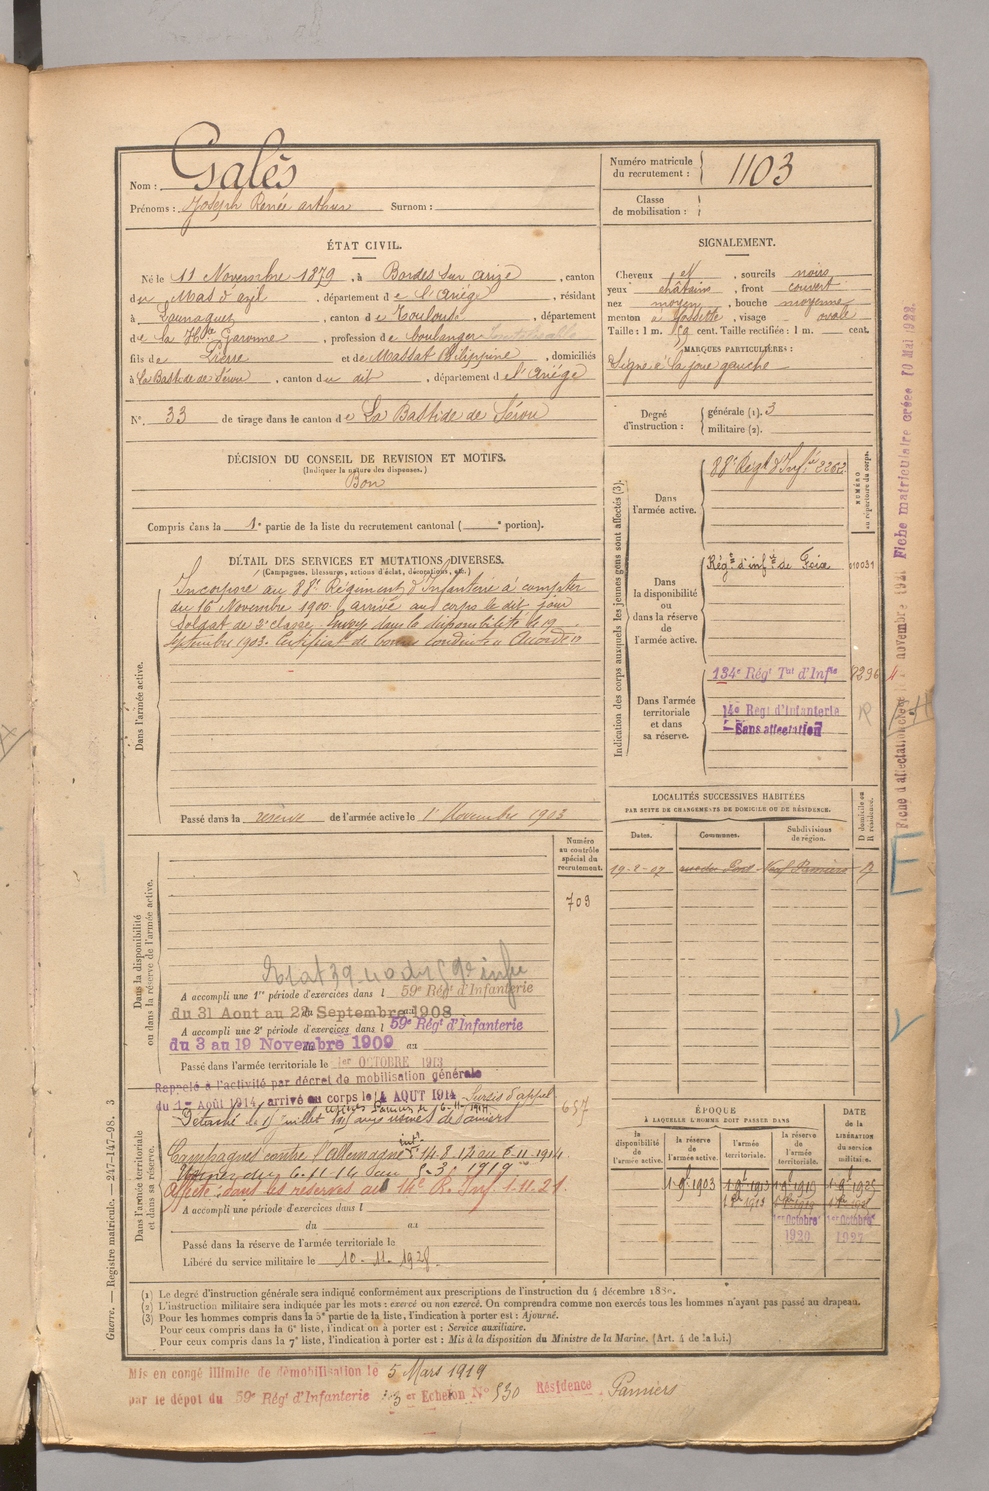 Nom : Galès
Prénoms : Joseph Renée arthur Surnom :
Numéro matricule du recrutement : 1103
Classe de mobilisation :
ÉTAT CIVIL.
Né le 11 Novembre 1879, à Bordes sur arize, canton
du Mas d'azil, département de l'Ariège, résidant
à Launaguet, canton de Toulouse, département
de la Hte Garonne, profession de boulanger
fils de Pierre et de Massat Philippine, domiciliés
à La Bastide de Sérou, canton du dit, département de l'Ariège
N° 33 de tirage dans le canton de La Bastide de Sérou
SIGNALEMENT.
Cheveux et, sourcils noirs
yeux châtains, front couvert
nez moyen, bouche moyenne
menton à fossette, visage ovale
Taille : 1 m. cent. Taille rectifiée : 1 m. cent.
MARQUES PARTICULIÈRES :
Signe à la joue gauche
Degré d'instruction : générale (1). 3
militaire (2).
DÉCISION DU CONSEIL DE REVISION ET MOTIFS.
(Indiquer la nature des dispenses.)
Bon
Compris dans la 1e partie de la liste du recrutement cantonal ( e portion).
DÉTAIL DES SERVICES ET MUTATIONS DIVERSES.
(Campagnes, blessures, actions d'éclat, décorations, etc.)
Dans l'armée active.
Incorporé au 88e Régiment d'Infanterie à compter
du 16 Novembre 1900 arrivé au corps le dit jour
Soldat de 2e classe. Envoyé dans la disponibilité le 19
Septembre 1903. Certificat de bonne conduite Accordé
Passé dans la réserve de l'armée active le 1er Novembre 1903
Indication des corps auxquels les jeunes gens sont affectés (3).
NUMÉRO au répertoire du corps.
Dans l'armée active.
88e Régt d'Infie 2262
Dans la disponibilité ou dans la réserve de l'armée active.
Régt d'infie de Foix
Dans l'armée territoriale et dans sa réserve.
134e Régt Tal d'Infie
14e Regt d'Infanterie
Sans affectation
LOCALITÉS SUCCESSIVES HABITÉES
PAR SUITE DE CHANGEMENTS DE DOMICILE OU DE RÉSIDENCE.
D domicile ou R résidence.
Dates. Communes. Subdivisions de région.
Dans la disponibilité ou dans la réserve de l'armée active.
Numéro au contrôle spécial du recrutement.
709
A accompli une 1re période d'exercices dans l 59e Régt d'Infanterie
du 31 Aout au 22 Septembre 1908
A accompli une 2e période d'exercices dans l 59e Régt d'Infanterie
du 3 au 19 Novembre 1909 au
Passé dans l'armée territoriale le 1er OCTOBRE 1913
Dans l'armée territoriale et dans sa réserve.
Rappelé à l'activité par décret de mobilisation générale
du 1er Août 1914, arrivé au corps le 14 AOUT 1914 Sursis d'appel
657
Campagnes contre l'allemagne
Affecté dans les réserves au 14e R. Inf. 1-11-21
A accompli une période d'exercices dans l
du au
Passé dans la réserve de l'armée territoriale le
Libéré du service militaire le 10-11-1928.
ÉPOQUE
À LAQUELLE L'HOMME DOIT PASSER DANS
DATE DE LA LIBÉRATION DU SERVICE MILITAIRE.
la disponibilité de l'armée active. la réserve de l'armée active. l'armée territoriale. la réserve de l'armée territoriale.
1er Octobre 1920
1er Octobre 1927
(1) Le degré d'instruction générale sera indiqué conformément aux prescriptions de l'instruction du 4 décembre 1889.
(2) L'instruction militaire sera indiquée par les mots : exercé ou non exercé. On comprendra comme non exercés tous les hommes n'ayant pas passé au drapeau.
(3) Pour les hommes compris dans la 5e partie de la liste, l'indication à porter est : Ajourné.
Pour ceux compris dans la 6e liste, l'indication à porter est : Service auxiliaire.
Pour ceux compris dans la 7e liste, l'indication à porter est : Mis à la disposition du Ministre de la Marine. (Art. 4 de la loi.)
Guerre. — Registre matricule. — 247-147-98. 3
Mis en congé illimité de démobilisation le 5 Mars 1919
par le dépot du 59e Régt d'Infanterie 3er Echelon N° 530 Résidence Pamiers
Fiche matriculaire créée 10 Mai 1922.